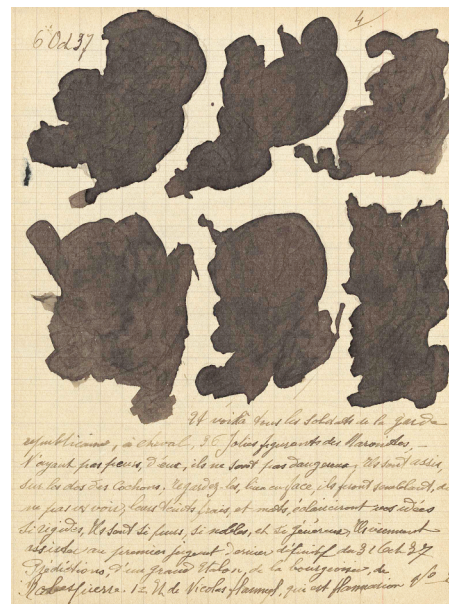 4
6 Oct 37
Et voilà tous les soldats de la garde
républicaine, à cheval, 36 jolies figurantes des
N'ayant pas peurs, d'eux, ils ne sont pas dangereux, Ils sont assis,
sur les dos des Cochons. Regardez-les, bien en face, ils font semblant, de
ne pas vos voir, leurs teints frais, et mots, vos idées
si rigides, Ils sont si fiers, si nobles, et si généreux, Ils viennent
assister au premier jugement dernier définitif du 31 Oct 37
Prédictions, d'un grand Etalon, de la bourgeoisie, de
12 Et de Nicolas flammel, qui est flammarion